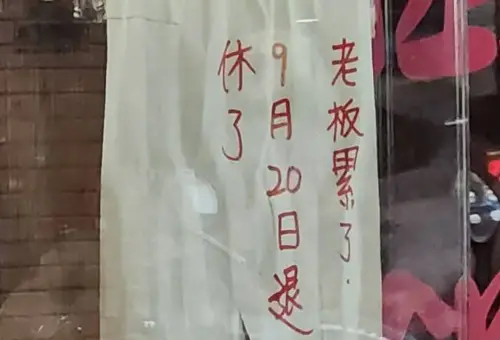 老板累了.
9月20日退
休了